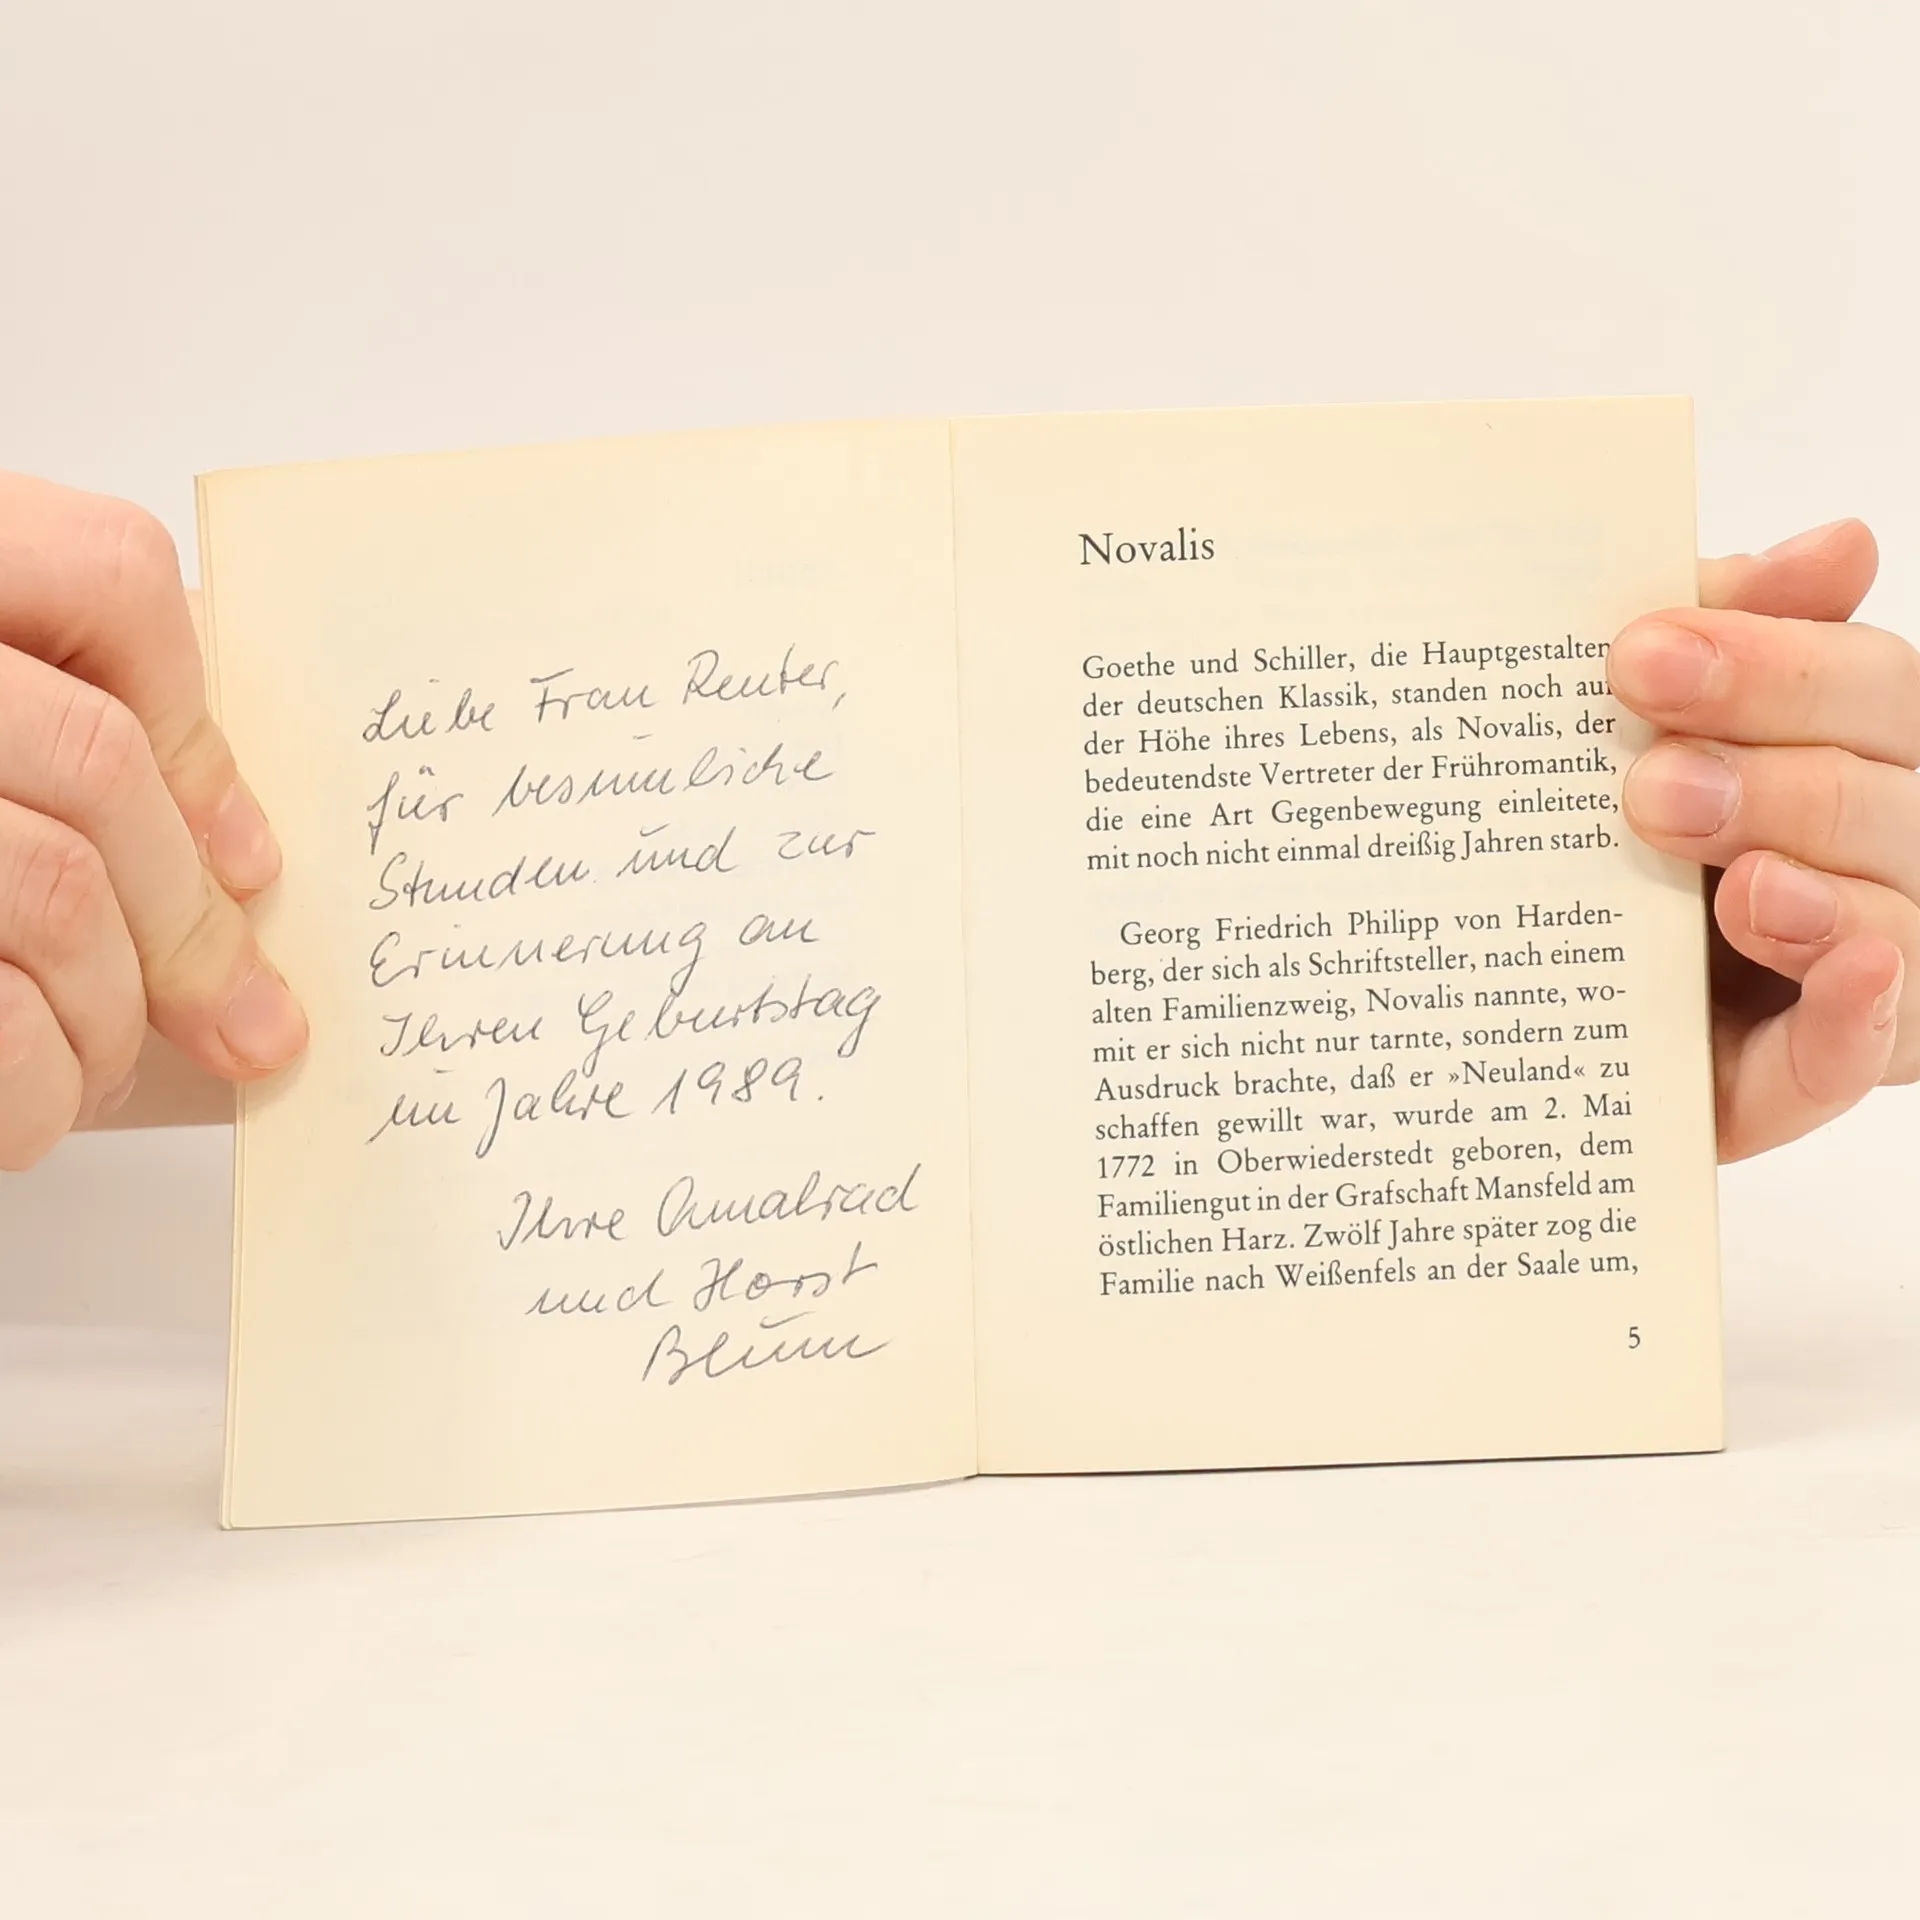 Liebe Frau Reuter,
für besinnliche
Stunden und zur
Erinnerung an
Ihren Geburtstag
im Jahre 1989.
Ihre Annalrad
und Horst
Blum
Novalis
Goethe und Schiller, die Hauptgestalten
der deutschen Klassik, standen noch auf
der Höhe ihres Lebens, als Novalis, der
bedeutendste Vertreter der Frühromantik,
die eine Art Gegenbewegung einleitete,
mit noch nicht einmal dreißig Jahren starb.
Georg Friedrich Philipp von Harden-
berg, der sich als Schriftsteller, nach einem
alten Familienzweig, Novalis nannte, wo-
mit er sich nicht nur tarnte, sondern zum
Ausdruck brachte, daß er »Neuland« zu
schaffen gewillt war, wurde am 2. Mai
1772 in Oberwiederstedt geboren, dem
Familiengut in der Grafschaft Mansfeld am
östlichen Harz. Zwölf Jahre später zog die
Familie nach Weißenfels an der Saale um,
5